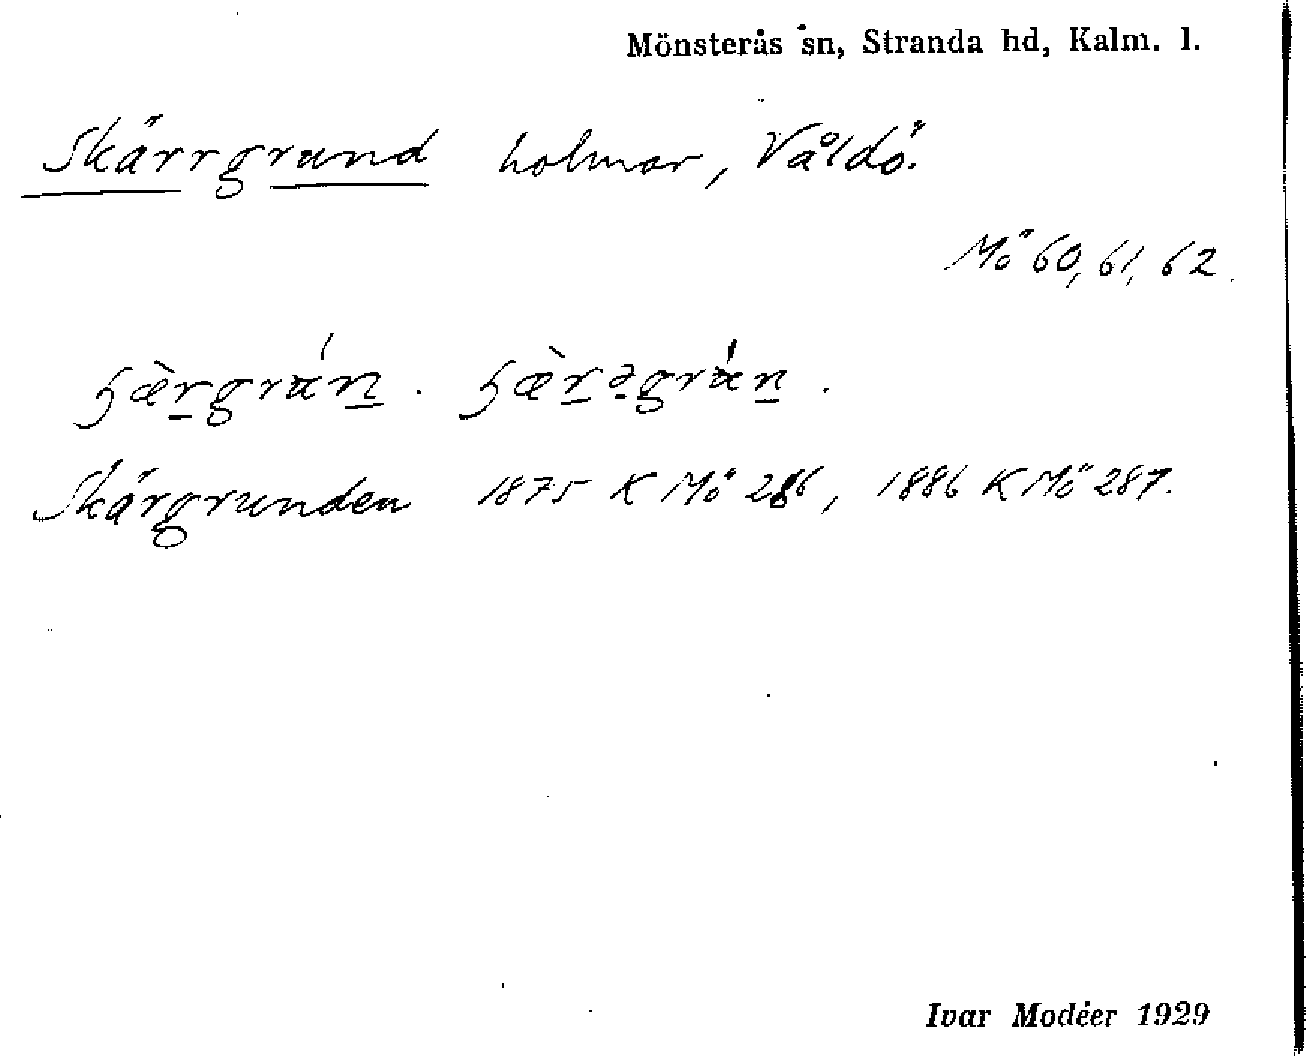 Mönsterås sn, Stranda hd, Kalm. l.
Skärrgrund holmar, Våldö.
Mö 60, 61, 62.
Skärgrunden 1875 K Mö 286, 1886 K Mö 287.
Ivar Modéer 1929